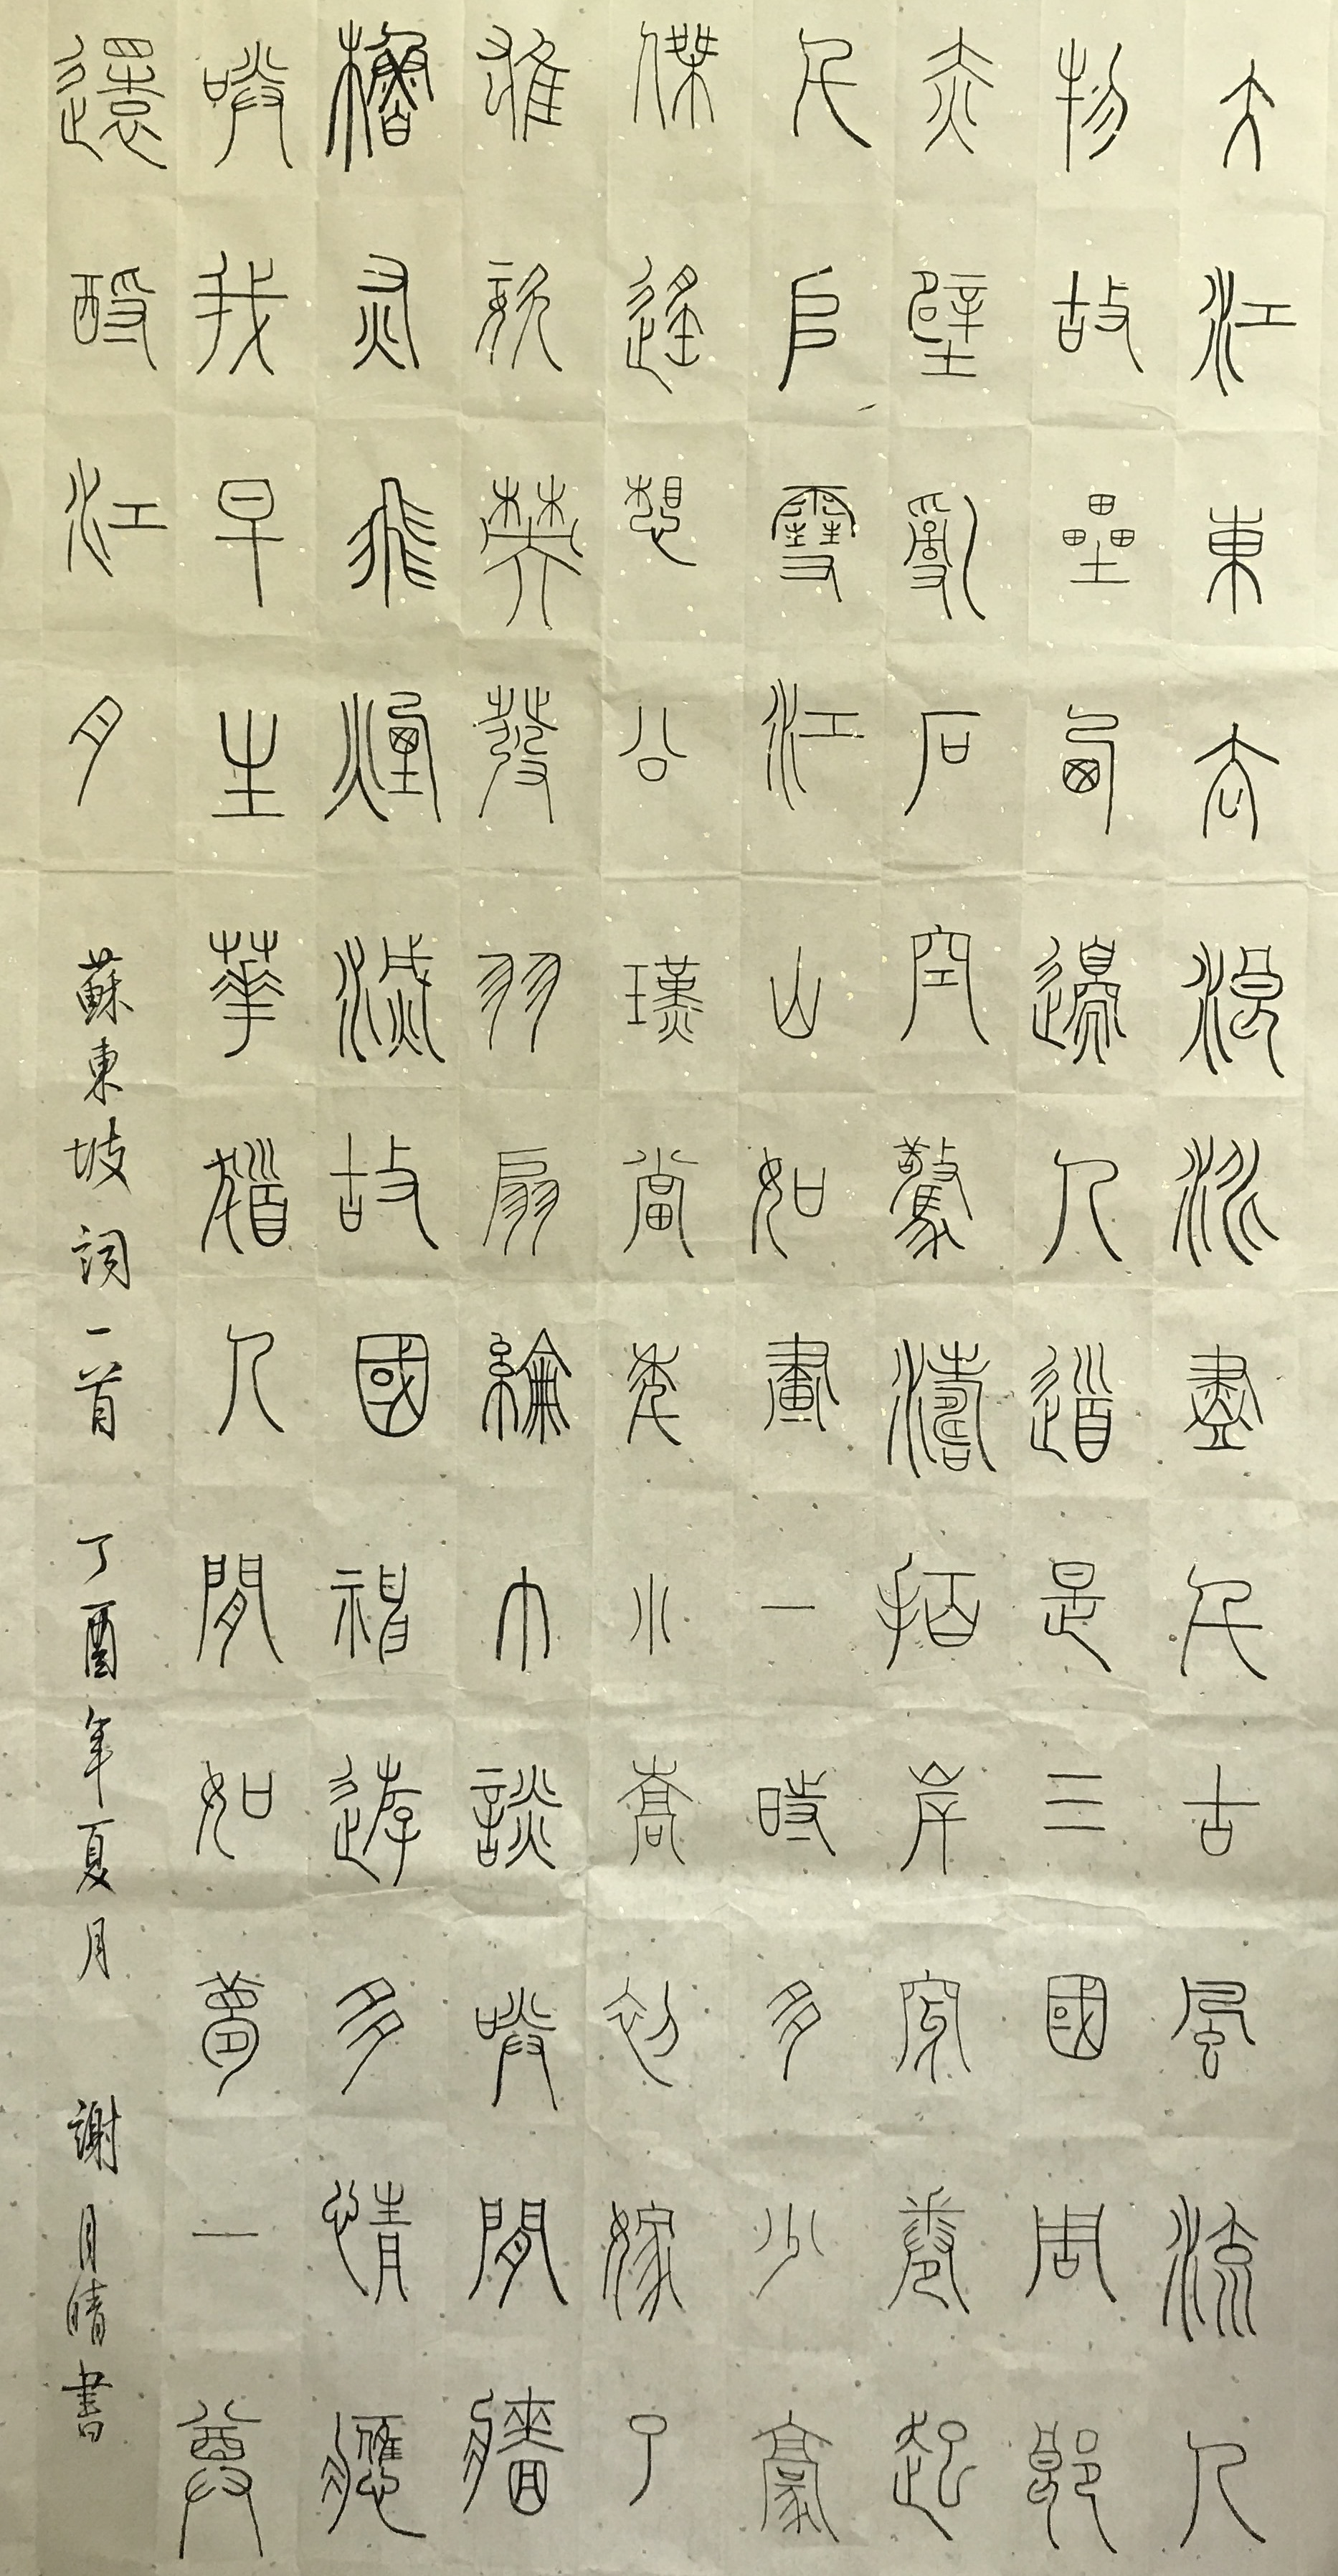 大江東去浪淘盡千古風流人
物故壘西邊人道是三國周郎
赤壁亂石空驚濤拍岸穿卷起
千堆雪江山如畫一時多少豪
傑遙想公瑾當年小喬初嫁了
雄姿英發羽扇綸巾談笑間檣
櫓灰飛煙滅故國神遊多情應
笑我早生華髮人間如夢一尊
還酹江月 蘇東坡詞一首 丁酉年夏月 謝月晴書